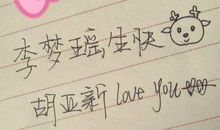 李梦瑶生快
胡亚新 love you